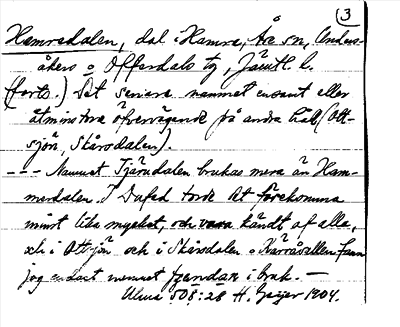 3
Hamredalen, dal i Hamre, Åre sn, Anders-
åkers o Offerdals tg, Jämtl. l.
(forts.) Det senare namnet ensamt eller
åtminstone öfvervägande på andra håll (Ott-
sjön, Stårsdalen).
--- Namnet Tjärudalen brukas mera än Ham-
merdalen. I Dufed torde det förekomma
minst lika mycket, och vara kändt af alla,
och i Ottsjön och i Stårsdalen o Norråvallen fann
jag endast namnet i bruk. —
Ulma 508:28 H. Geijer 1904.